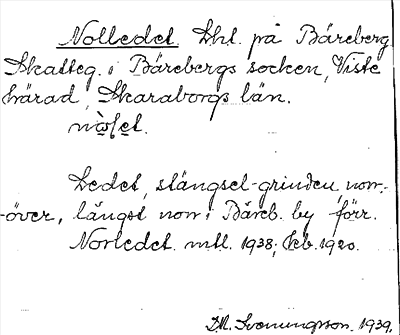 Nolledet Lht. på Bäreberg
Skatteg. i Bärebergs socken, Viste
härad, Skaraborgs län.
nò̱ḷe̱t.
Ledet, stängsel-grinden norr-
-över, längst norr i Bäreb. by förr.
Norledet. mtl. 1938; Kb. 1920.
D.M. Svenungson. 1939.